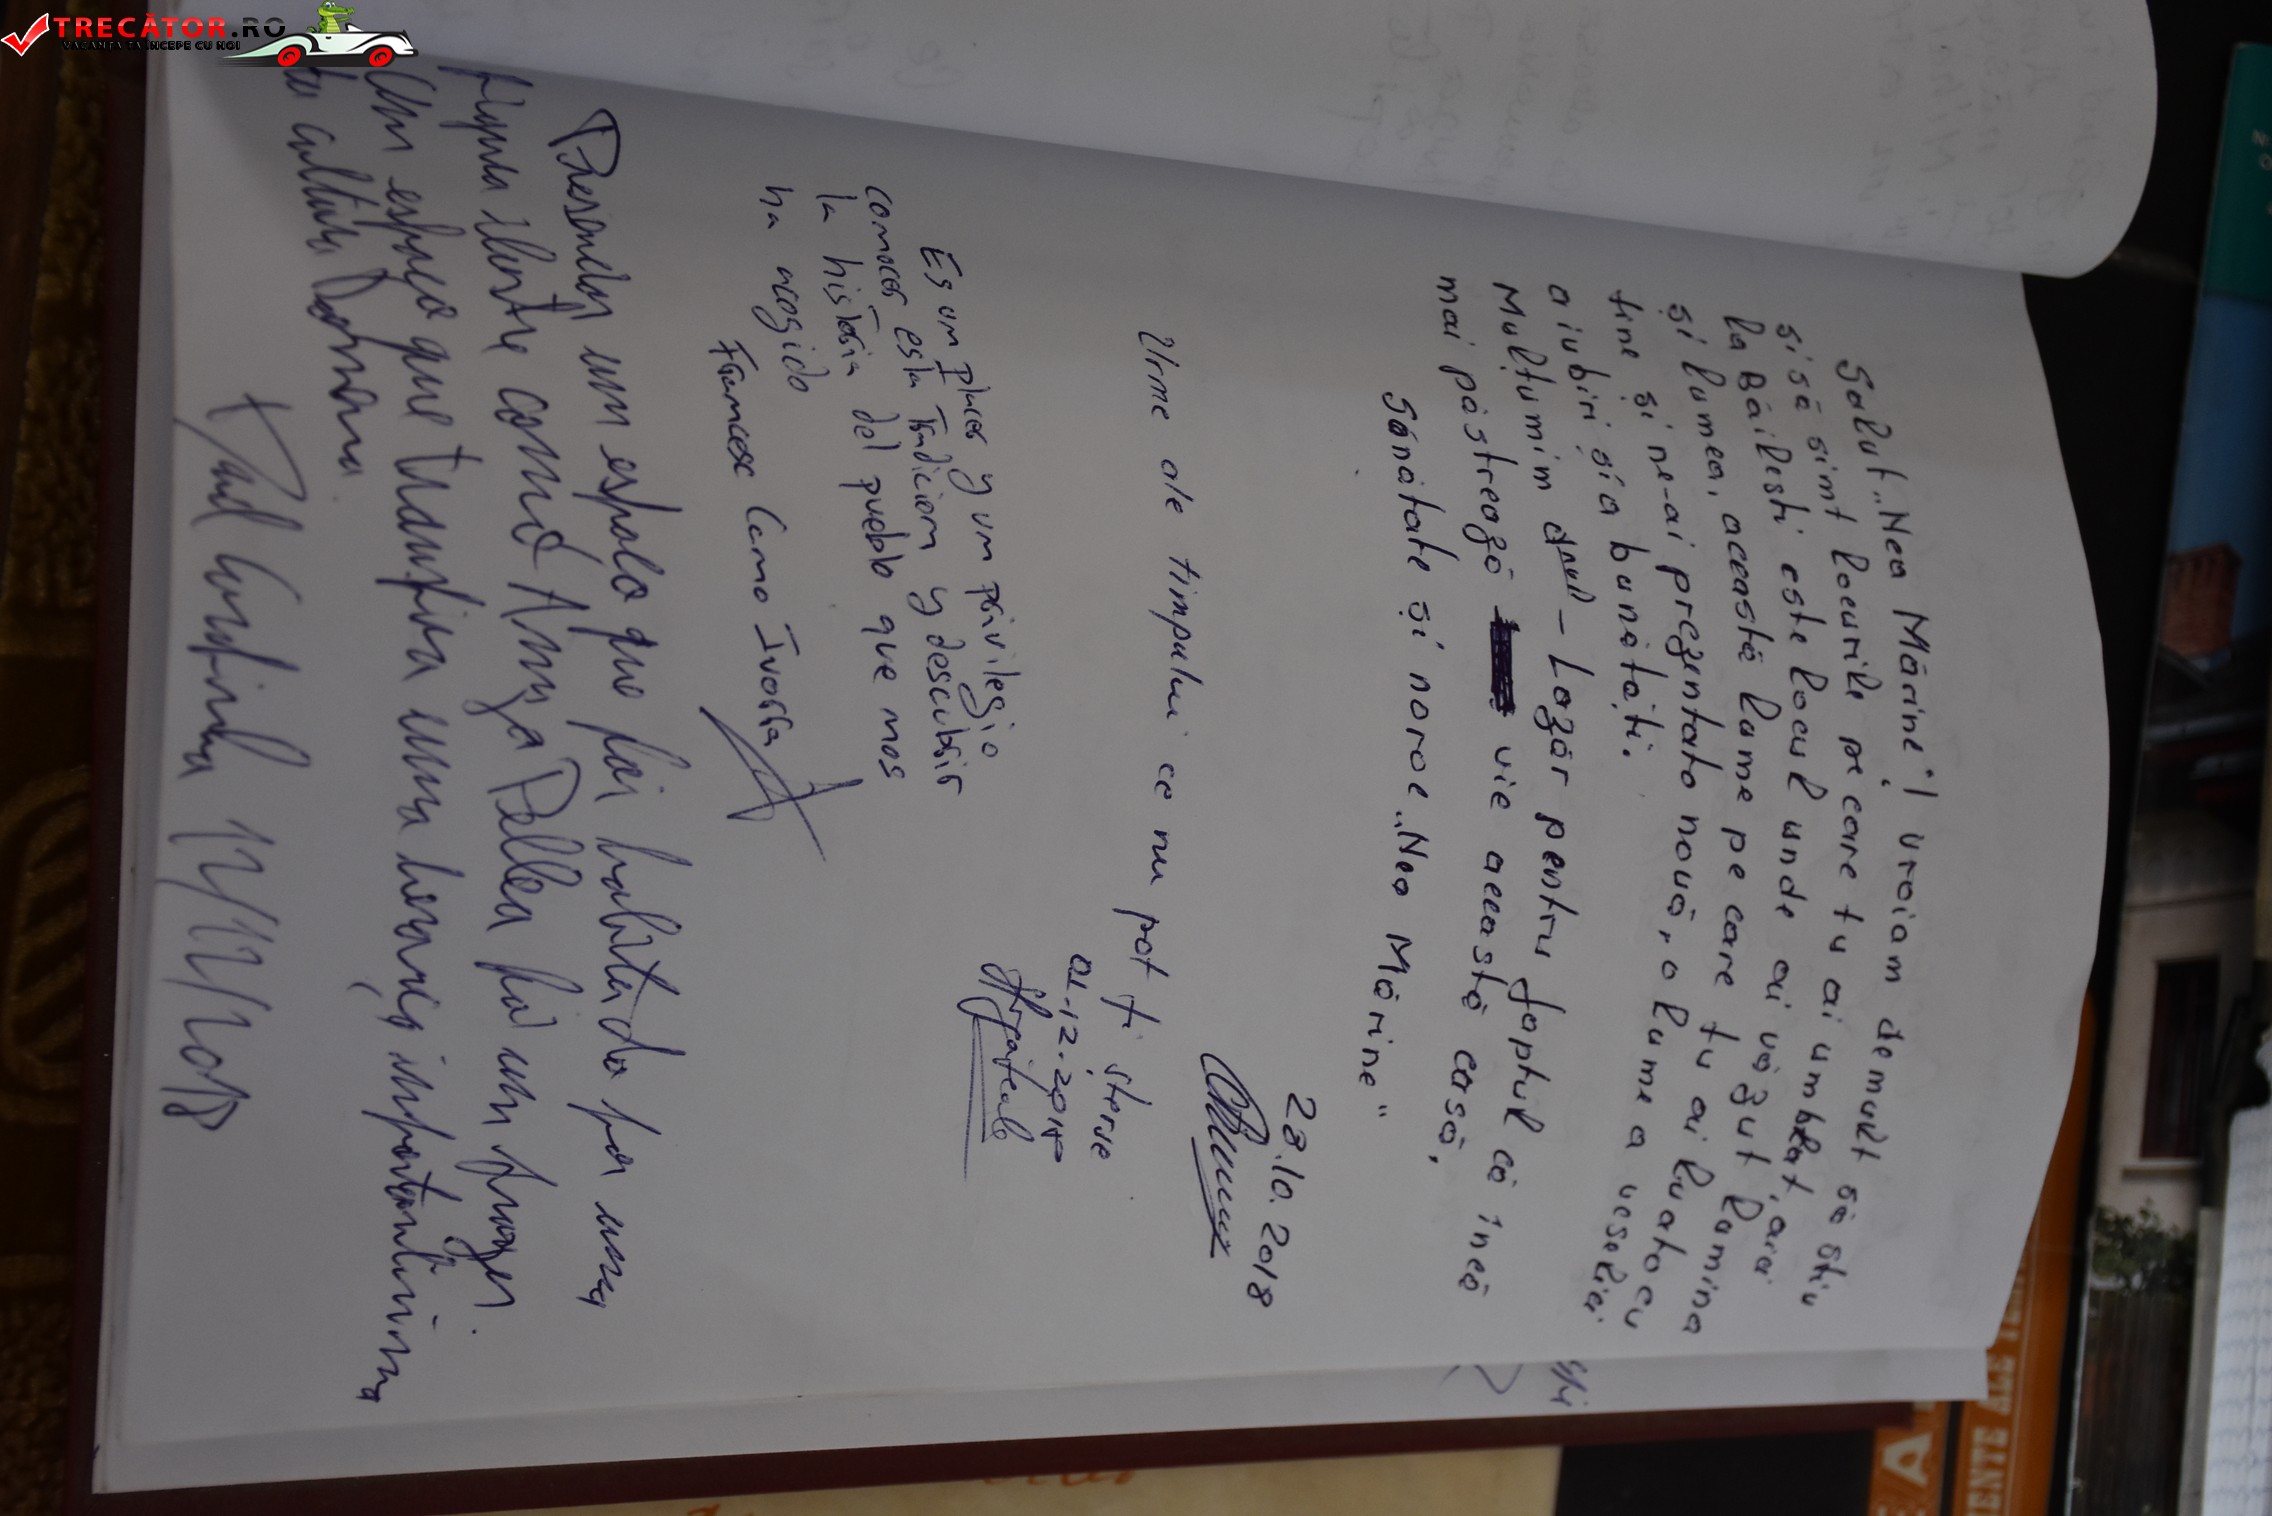 TRECĂTOR.RO
VACANȚA TA ÎNCEPE CU NOI
Salut „Nea Mărine”! Vroiam demult să știu
și să simt locurile pe care tu ai umblat, arăi
la Băilești este locul unde ai văzut lumina
și lumea, această lume pe care tu ai luat-o cu
tine și ne-ai prezentat-o nouă, o lume a veseliei
a iubiri și a bunătăți.
Mulțumim dnul - Lazăr pentru faptul că încă
mai păstrează vie această casă.
Sănătate și noroc „Nea Mărine”
28.10.2018
Urme ale timpului ce nu pot fi șterse
01.12.2018
Es um placer y um privilegio
comocer esta Tradiciom y descubrir
la historia del pueblo que mos
ha acogido
Framcesc Camo Ivorra
Presenciar um espolo que foi habitado por uma
figura ilustre como o Amza Pellea foi um prazer.
Um espaço que transpira uma herança importantíssima
da cultura Romena.
2018
E A
VENTE ALE